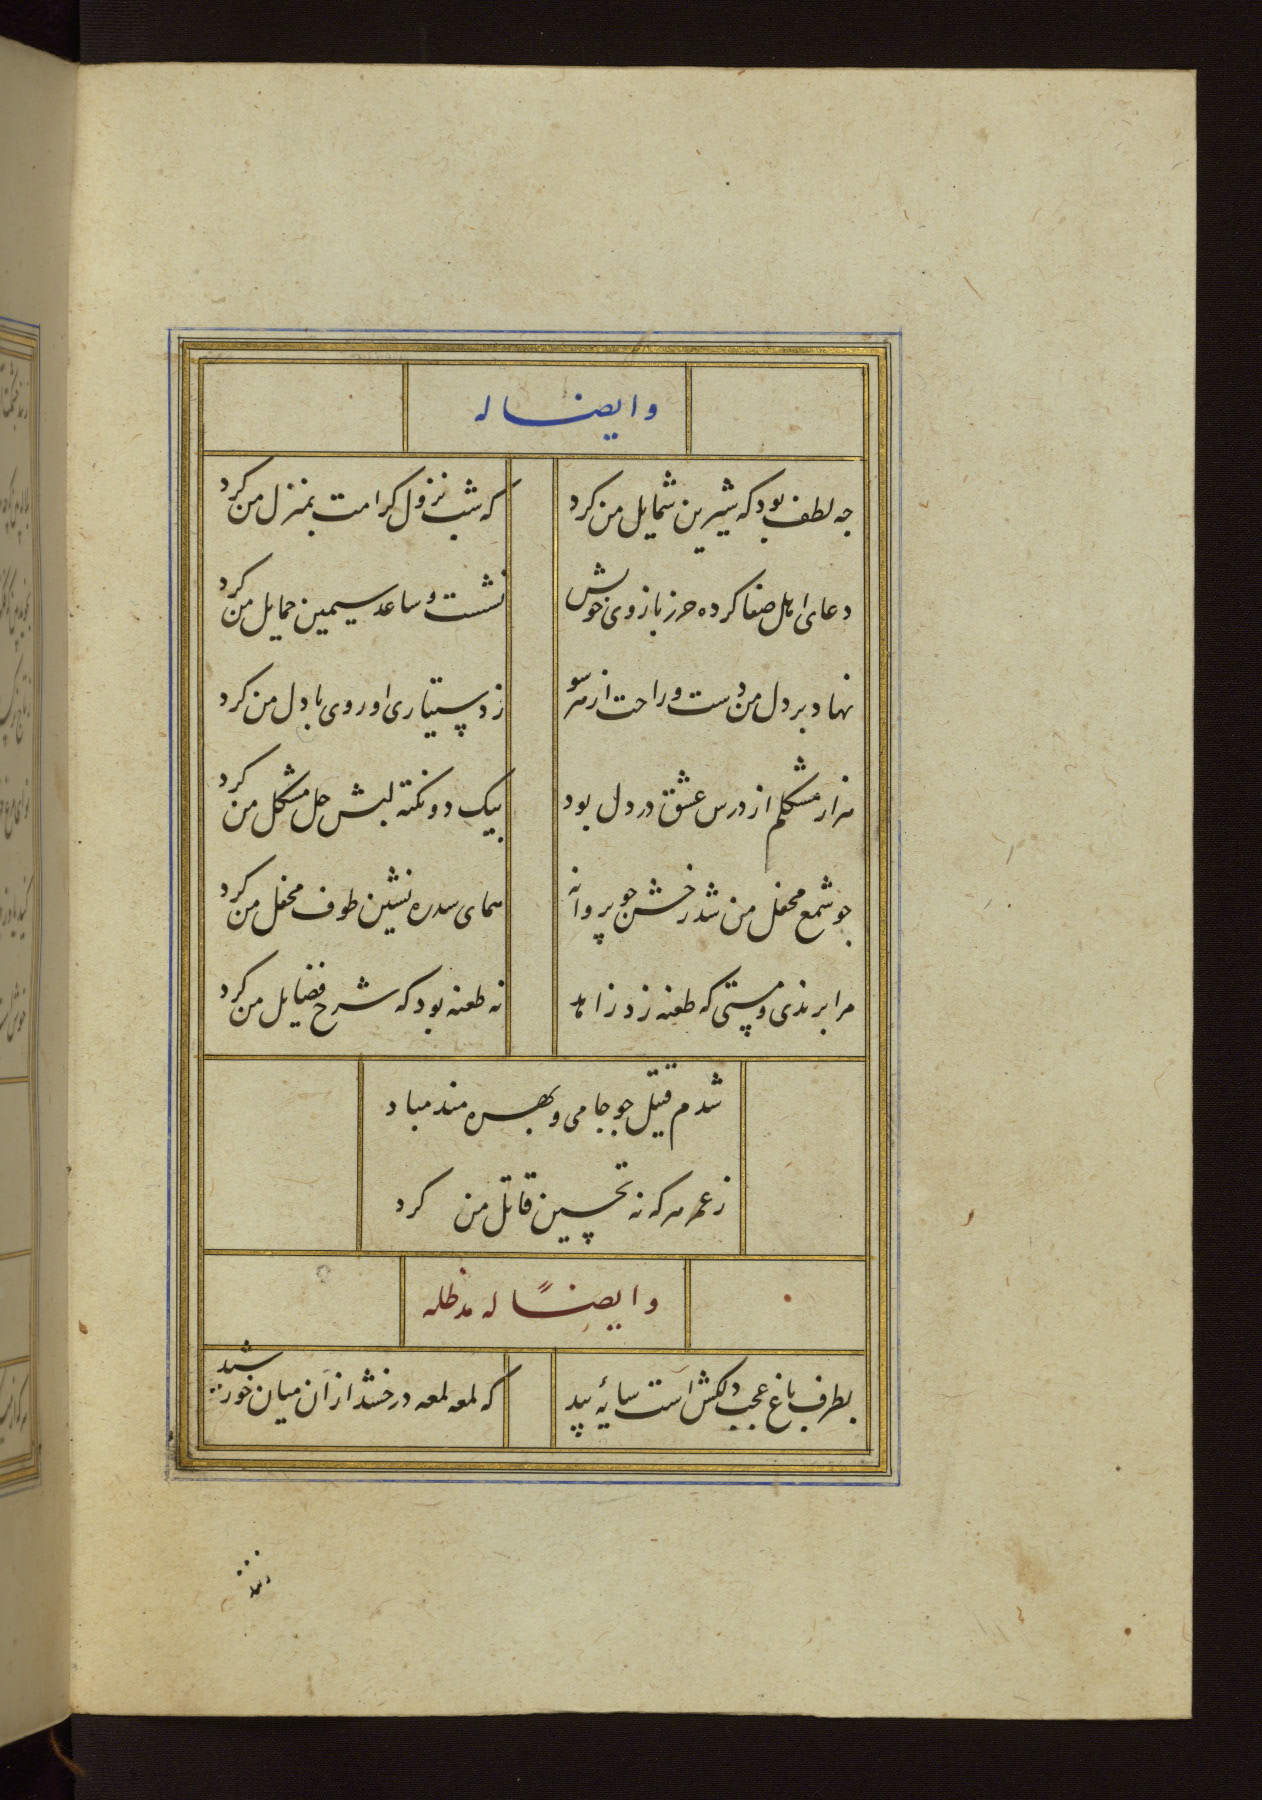 وایضاله
جه لطف بود که شیرین شمایل من کرد
که شب نزول کرامت بمنزل من کرد
دعای اهل صفا کرده حرز بازوی خویش
نشست و ساعد سیمین حمایل من کرد
نهاد بر دل من دست و راحت از هر سو
ز دستیاری او روی با دل من کرد
هزار مشکلم از درس عشق در دل بود
بیک دو نکته لبش حل مشکل من کرد
جو شمع محفل من شد رخش جو پروانه
همای سدره نشین طوف محفل من کرد
مرا برندی و مستی که طعنه زد زاهد
نه طعنه بود که شرح فضایل من کرد
شدم قتیل جو جامی و بهره مند مباد
ز عمر هر که نه تحسین قاتل من کرد
وایضاً له مدظله
بطرف باغ عجب دلکش است سایهٔ بید
که لمعه لمعه درخشد از آن میان خورشید